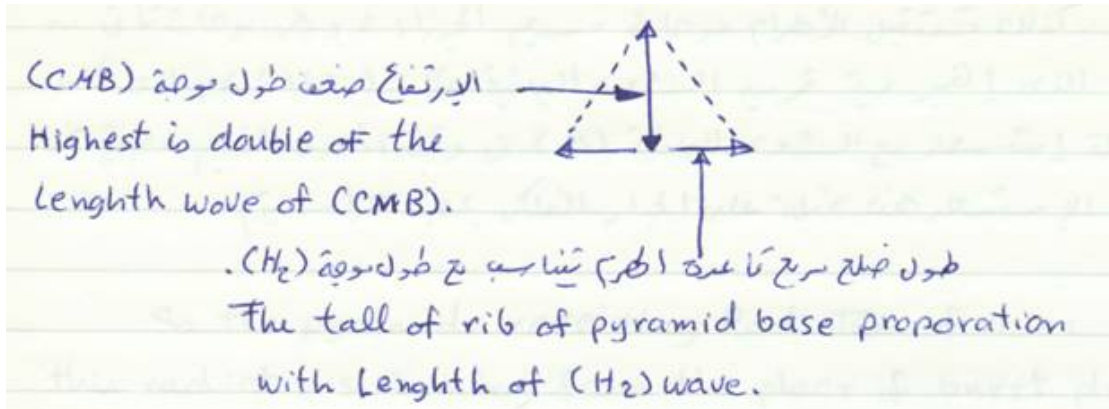 الإرتفاع ضعف طول موجة (CMB)
Highest is double of the
Lenghth wove of (CCMB).
طول ضلع مربع قاعدة الهرم تتناسب مع طول موجة (H2).
The tall of rib of pyramid base proporation
with Lenghth of (H2) wave.